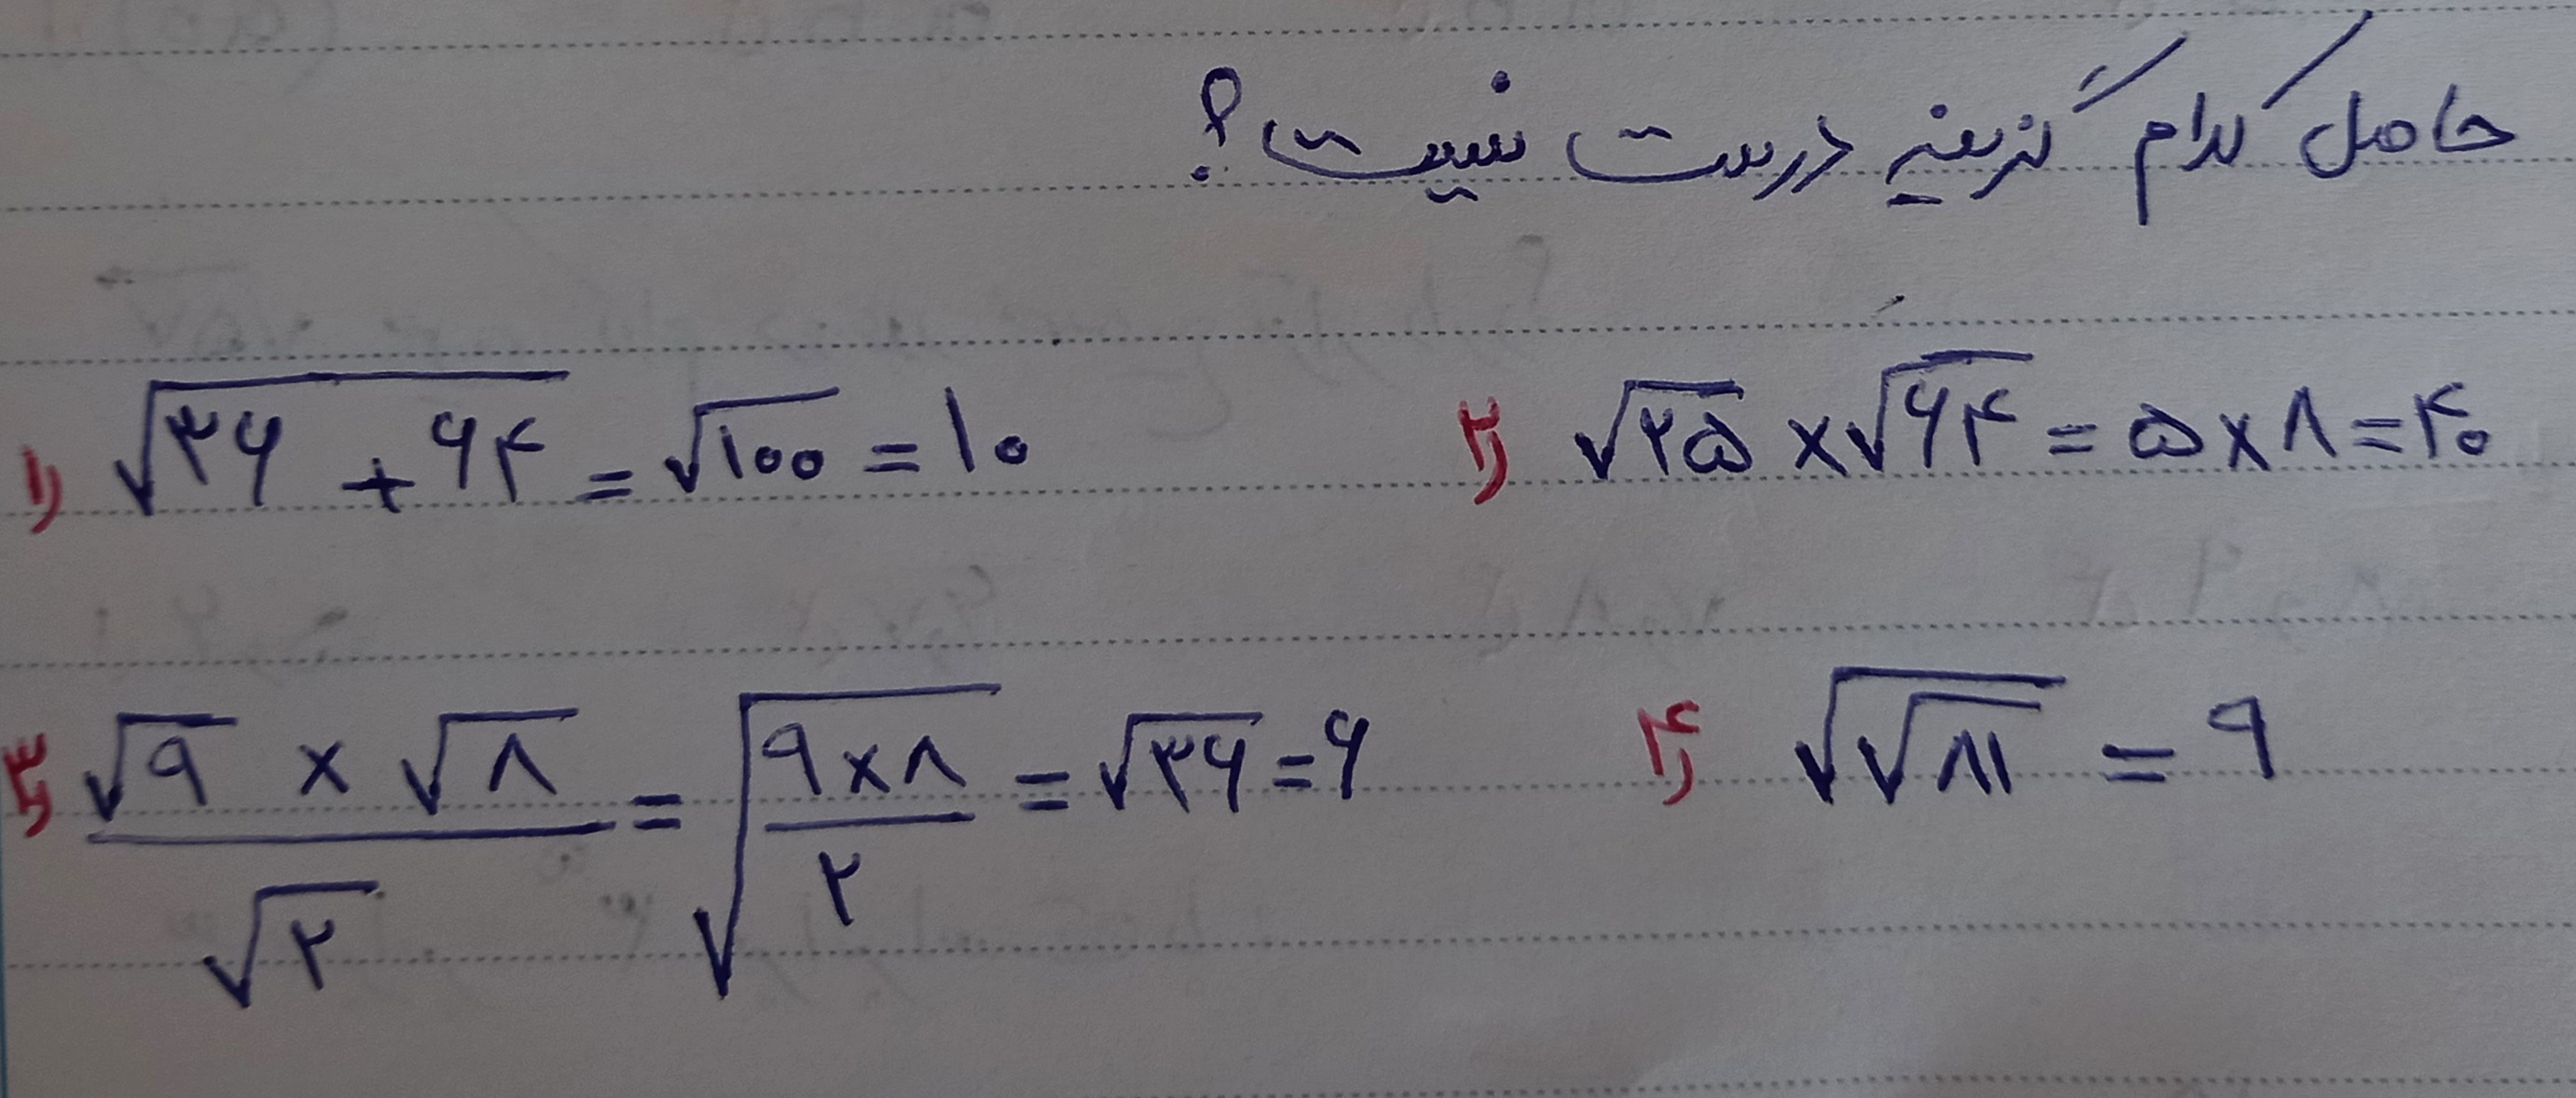 حاصل کدام گزینه درست نیست؟
۱) √(۳۶ + ۶۴) = √۱۰۰ = ۱۰
۲) √۲۵ × √۶۴ = ۵ × ۸ = ۴۰
۳) (√۹ × √۸) / √۲ = √((۹ × ۸) / ۲) = √۳۶ = ۶
۴) √√۸۱ = ۹